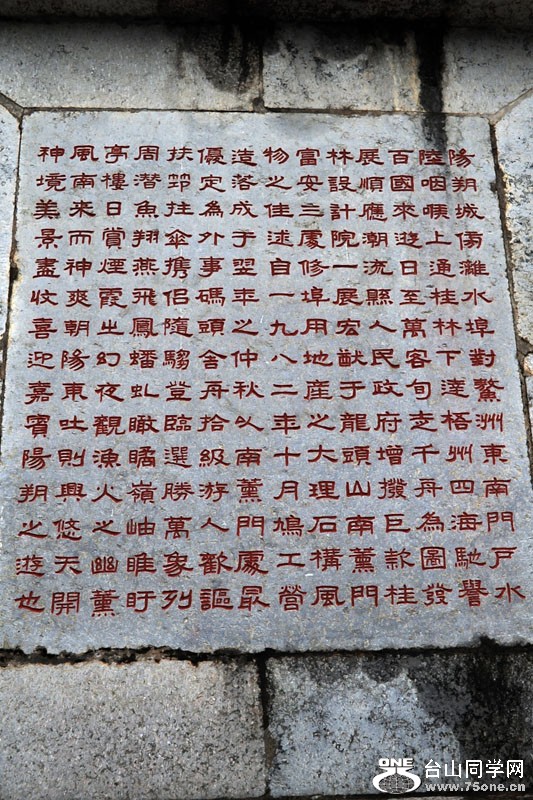 陽朔城傷灕水埠對鰲洲東南門戶水
陸咽喉上通桂林下達梧州四海馳譽
百國來遊日至萬客旬走千舟為圖發
展順應潮流縣人民政府增撥巨款桂
林設計院一展宏猷于龍頭山南薰門
富安三處修埠用地產之大理石構風
物之佳述自一九八二年十月鳩工營
造落成于翌年之仲秋以南薰門處最
優定為外事碼頭舍舟拾級游人歡謳
扶筇拄傘攜侶隨騶登臨選勝萬象列
周潛魚翔燕飛鳳蟠虬瞰矚嶺岫睢盱
亭樓日賞煙霞之幻夜觀漁火之幽薰
風南來而神爽朝陽東吐則興悠天開
神境美景盡收喜迎嘉賓陽朔之遊也
ONE
台山同学网
www.75one.cn